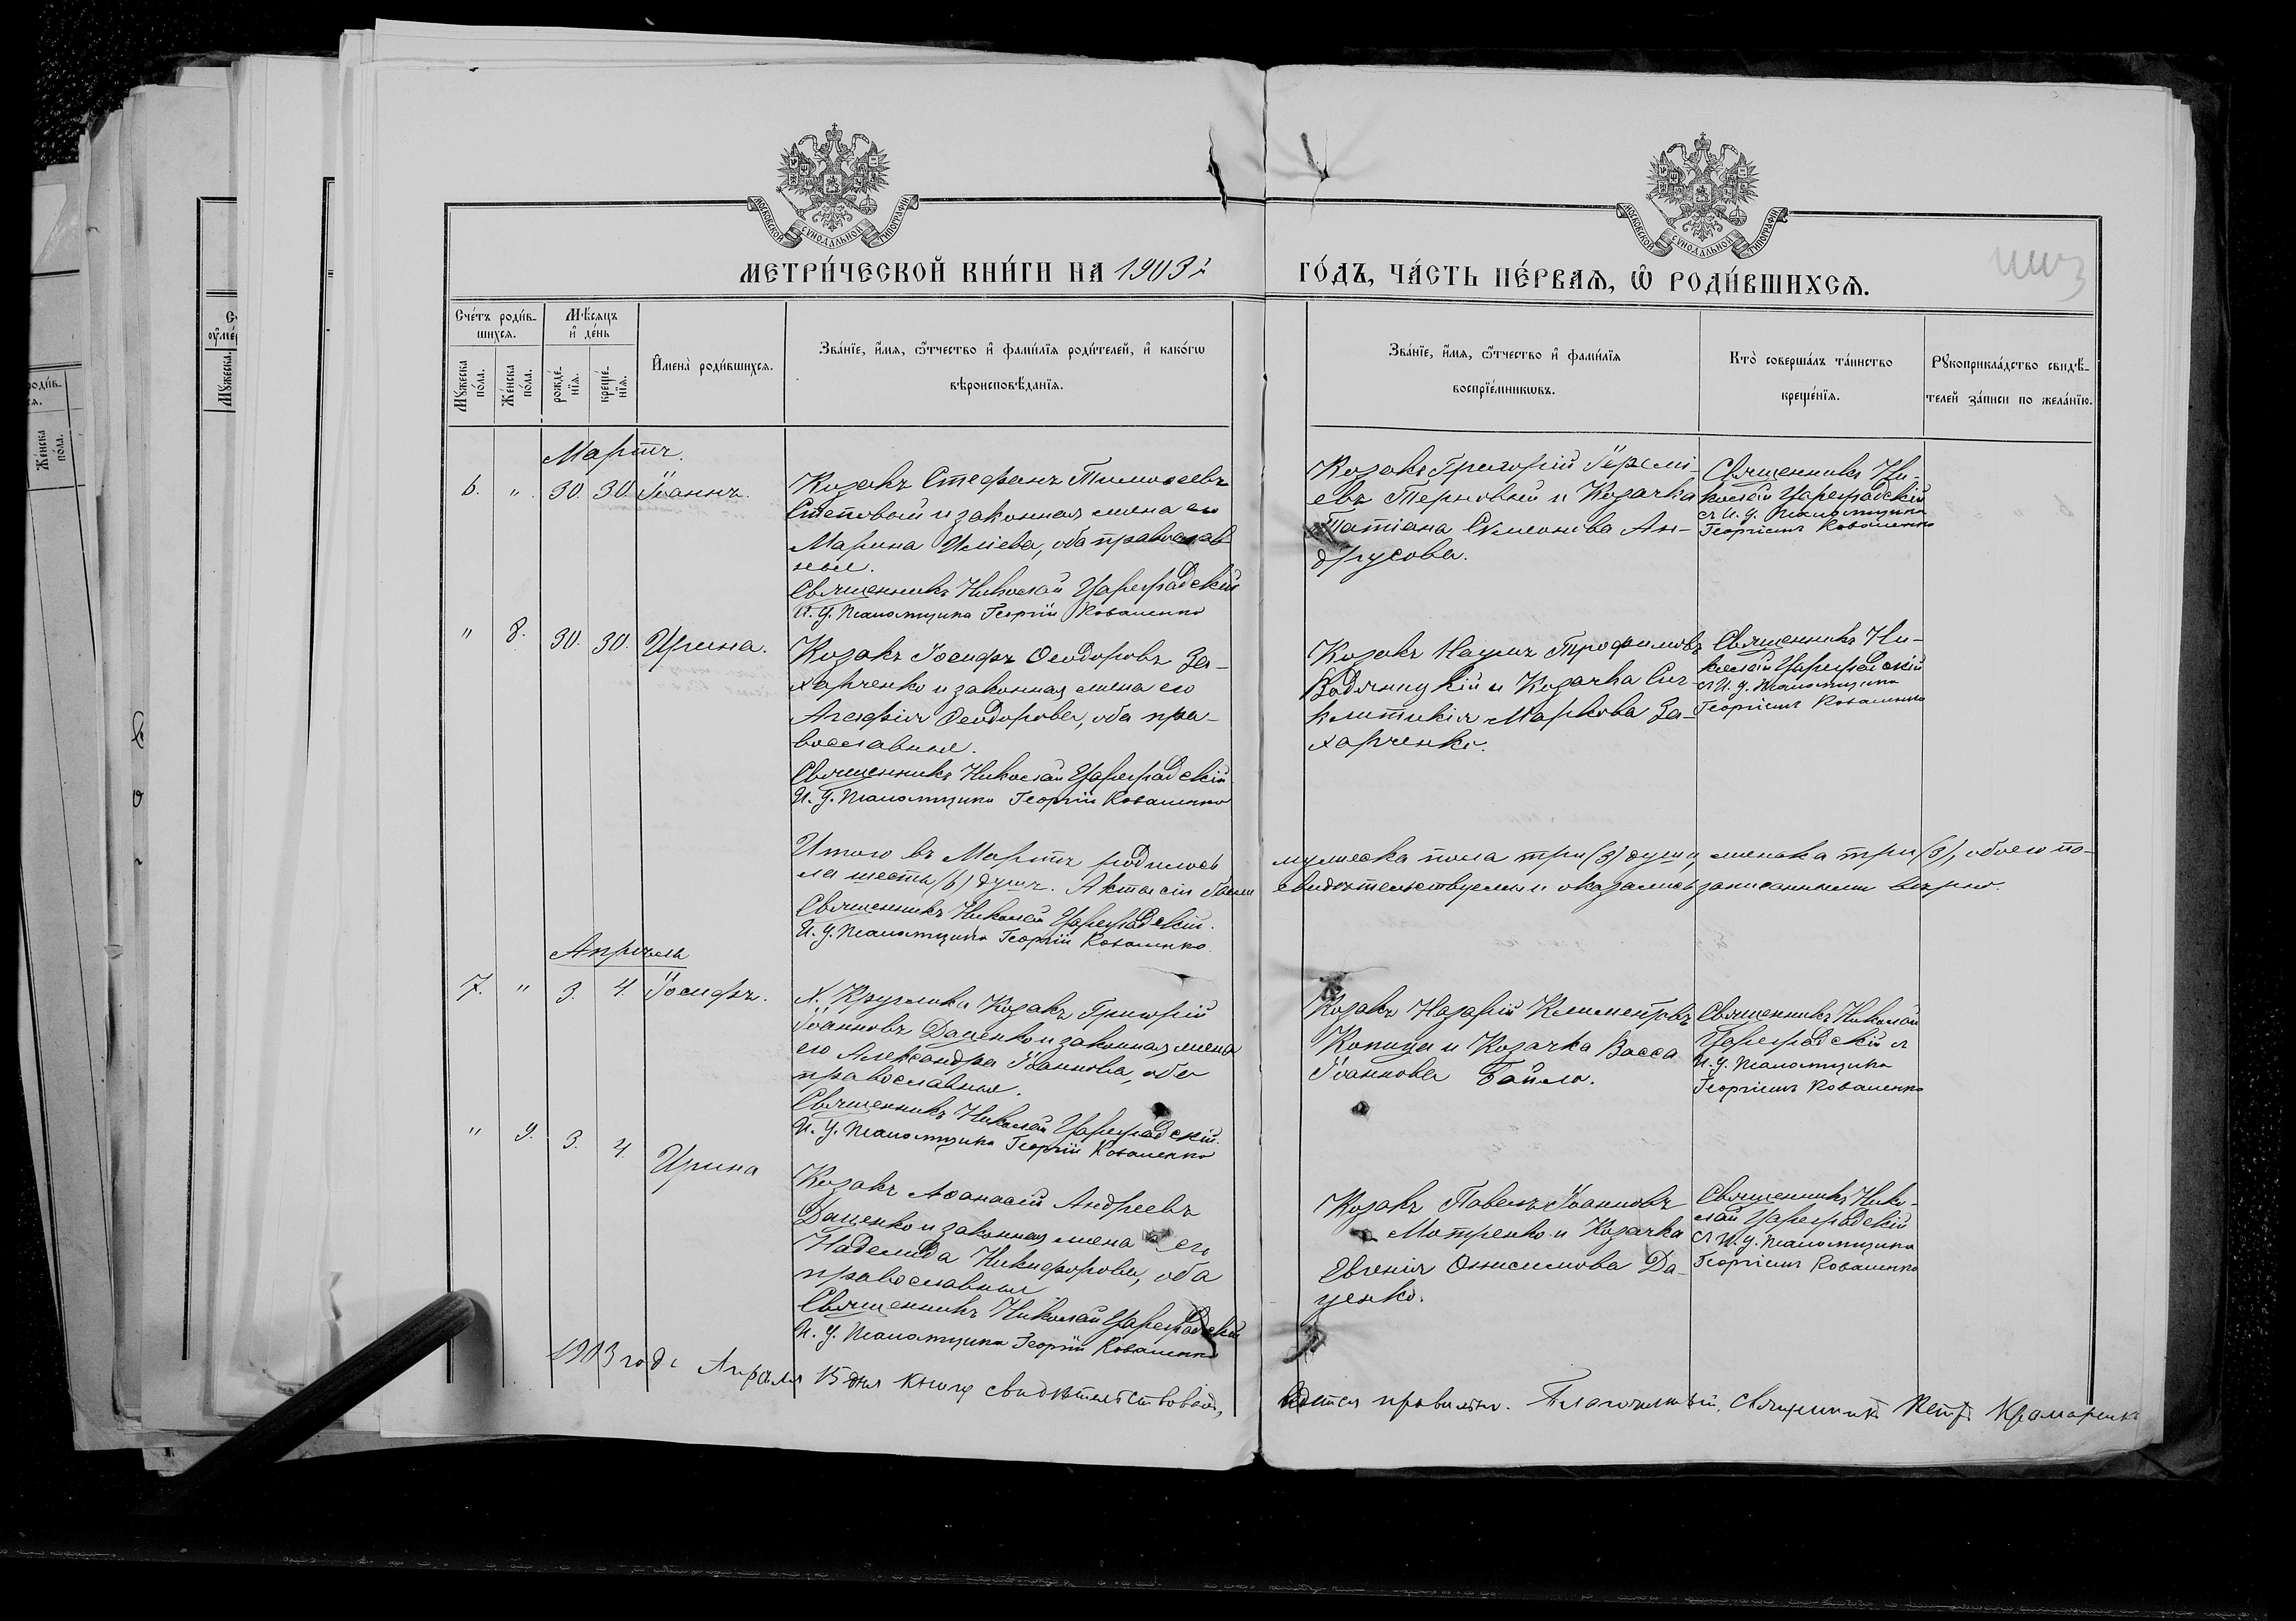 МОСКОВСКОЙ СУНОДАЛЬНОЙ ТИПОГРАФІИ
МОСКОВСКОЙ СУНОДАЛЬНОЙ ТИПОГРАФІИ
МЕТРИ́ЧЕСКОЙ КНИ́ГИ НА 1903 й
ГО́ДЪ, ЧА́СТЬ ПЕ́РВАѦ, Ѡ РОДИ́ВШИХСѦ.
Сче́тъ роди́в-
шихся.
Мѣ́сяцъ
и де́нь
Мꙋжеска
по́ла.
Же́нска
по́ла.
рожде́-
нїя.
креще́-
нїя.
Имена̀ роди́вшихся.
Зва́нїе, и́мя, ѻ҆́тчество и҆ фами́лїя роди́телей, и҆ како́гѡ
вѣроисповѣ́данїя.
Зва́нїе, и́мя, ѻ҆́тчество и҆ фами́лїя
воспрїе́мникѡвъ.
Кто̀ соверша́лъ та́инство
креще́нїя.
Рꙋкоприкла́дство свидѣ́-
телей за́писи по жела́нїю.
Мартъ.
6. " 30. 30. Іоаннъ.
Козакъ Стефанъ Тимофеевъ
Степовый и законная жена его
Марина Иліева, оба православ
ные.
Священникъ Николай Цареградскій
И. д. псаломщика Георгій Коваленко
Козакъ Григорій Іеремі-
евъ Терновый и Козачка
Татіана Симонова Ан-
друсова.
Священникъ Ни-
колай Цареградскій
съ И. д. псаломщика
Георгіемъ Коваленко
" 8. 30. 30. Ирина.
Козакъ Іосифъ Ѳеодоровъ За-
харченко и законная жена его
Агафія Ѳеодорова, оба пра-
вославные.
Священникъ Николай Цареградскій
И. д. псаломщика Георгій Коваленко
Козакъ Наумъ Трофимовъ
Водяницкій и Козачка Син-
клитикія Маркова За-
харченко.
Священникъ Ни-
колай Цареградскій
съ И. д. псаломщика
Георгіемъ Коваленко
Итого въ Мартѣ родилось мужеска пола три (3) души, женска три (3), обоего по-
ла шесть (6) душъ. Акты сіи были свидѣтельствуемы и оказались записанными вѣрно.
Священникъ Николай Цареградскій.
И. д. псаломщика Георгій Коваленко.
Апрѣль
7. " 3. 4. Іосифъ.
Х. Круглика Козакъ Григорій
Іоанновъ Даценко и законная жена
его Александра Іоаннова, оба
православные.
Священникъ Николай Цареградскій.
И. д. псаломщика Георгій Коваленко
Козакъ Назарій Климентовъ
Копица и Козачка Васса
Іоаннова Байло.
Священникъ Николай
Цареградскій съ
И. д. псаломщика
Георгіемъ Коваленко
" 9. 3. 4. Ирина
Козакъ Аѳанасій Андреевъ
Даценко и законная жена его
Надежда Никифорова, оба
православные
Священникъ Николай Цареградскій
И. д. псаломщика Георгій Коваленко
Козакъ Павелъ Іоанновъ
Мотренко и Козачка
Евгенія Онисимова Да-
ценко.
Священникъ Нико-
лай Цареградскій
съ И. д. псаломщика
Георгіемъ Коваленко
1903 года Апрѣля 15 дня книгу свидѣтельствовалъ,
ведется правильно. Благочинный, священникъ Петръ Крамаренко